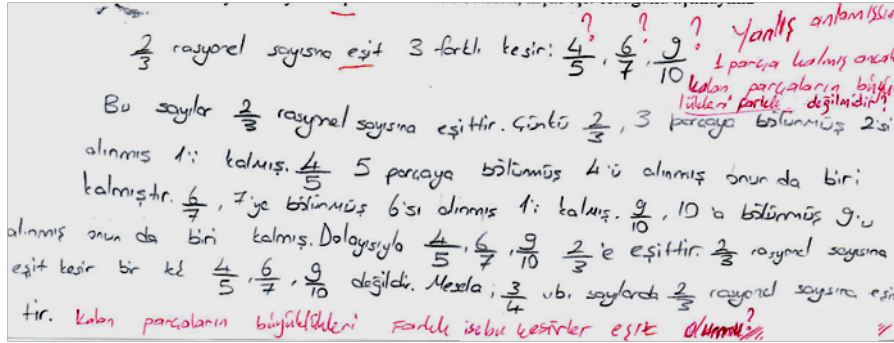 Yanlış anlamışsın
2/3 rasyonel sayısına eşit 3 farklı kesir: 4/5?, 6/7?, 9/10?
1 parça kalmış ancak
kalan parçaların büyük
lükleri farklı değilmidir?
Bu sayılar 2/3 rasyonel sayısına eşittir. Çünkü 2/3, 3 parçaya bölünmüş 2'si
alınmış 1'i kalmış. 4/5 5 parçaya bölünmüş 4'ü alınmış onun da biri
kalmıştır. 6/7, 7'ye bölünmüş 6'sı alınmış 1'i kalmış. 9/10, 10'a bölünmüş 9'u
alınmış onun da biri kalmış. Dolayısıyla 4/5, 6/7, 9/10 2/3'e eşittir. 2/3 rasyonel sayısına
eşit kesir bir 4/5, 6/7, 9/10 değildir. Mesela; 3/4 vb. sayılarda 2/3 rasyonel sayısına eşit
tir. Kalan parçaların büyüklükleri farklı ise bu kesirler eşit